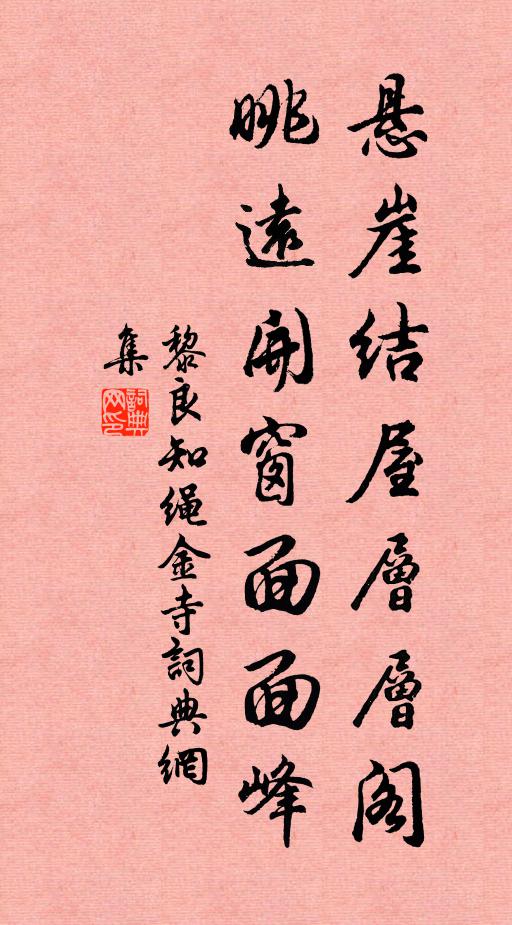 悬崖结屋層層阁
眺遠開窗面面峰
黎良知绳金寺詞典網
集
詞典網印